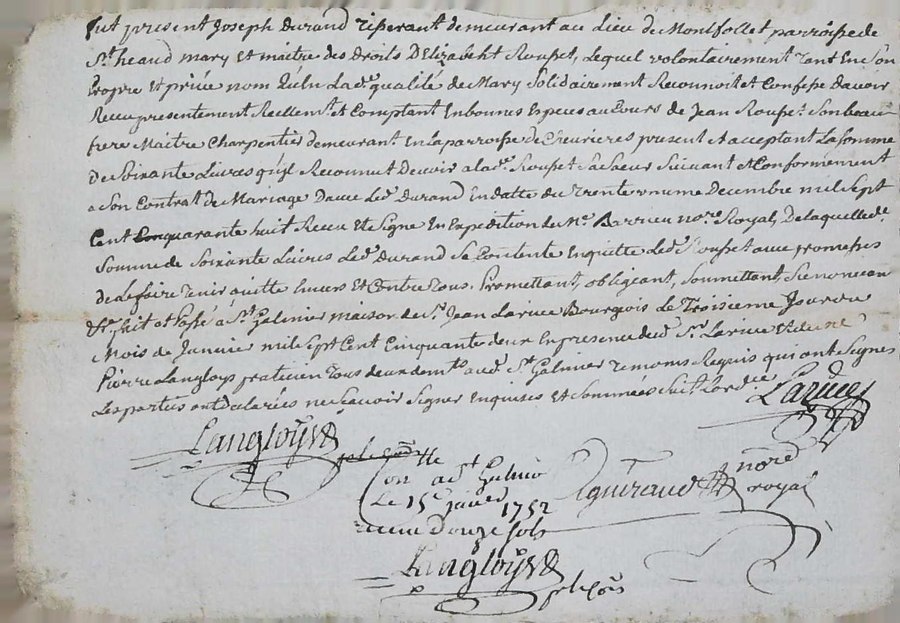 fut present Joseph Durand tisserant demeurant au Lieu de Montfollet parroisse de
St. heand mary et maitre des Droits D'Elizabeht Rouset, Lequel volontairement tant en son
propre et privé nom qu'en La de. qualité de Mary Solidairement Reconnoit et Confesse D'avoir
Receu presentement Reellemt. et Comptant En bonnes Especes au Cours de Jean Rouset Son beau
frere Maitre Charpentier demeurant En La parroisse de Chevrieres present et acceptant La Somme
de Soixante Livres qu'il Reconnut Devoir a lad. Rouset Sa Sœur Suivant et Conformement
a Son Contrat de Mariage D'avec Led. Durand En datte du Trente unume Decembre mil Sept
Cent quarante huit Receu et Signé En Expedition de Me. Barrieu nore. Royal, De laquelle de.
Somme de Soixante Livres Led. Durand Se Contente En quitte Led. Rouset avec promesses
de Le faire tenir quitte Envers et Contre Tous. Promettant, obligeant, Soumettant, Renoncent
fait et passé à St. Galmier maison de Sr. Jean Larue Bourgeois Le Troisieme Jour du
Mois de Janvier mil Sept Cent Cinquante deux En presence dud. Sr. Larue et de
Pierre Langloys praticien Tous deux domts. aud. St. Galmier temoins Requis qui ont Signés
Les parties ont declarées ne Scavoir Signer Enquises et Sommées
Larue
Langloys
on a St Galmier
Le 15e janvier 1752
recu Douze sols
guiraud nore royal
Langloys